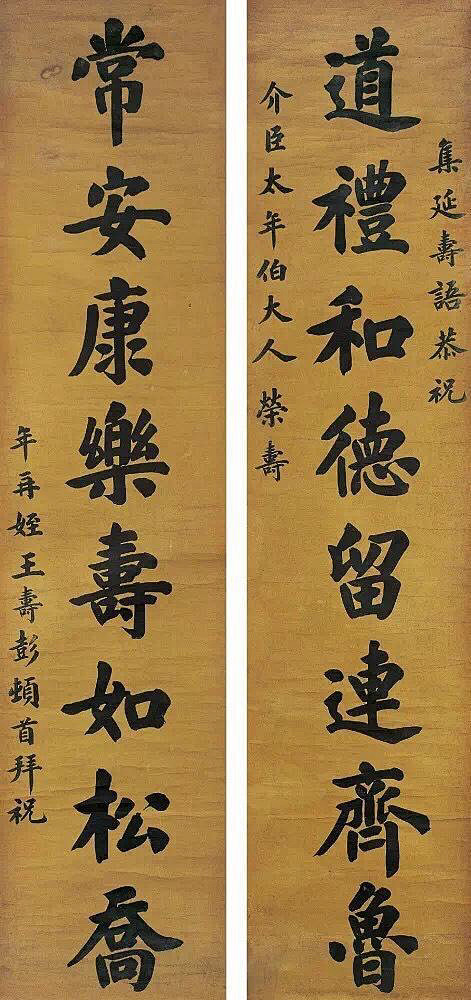 集延壽語恭祝
道禮和德留連齊魯
介臣太年伯大人榮壽
常安康樂壽如松喬
年再姪王壽彭頓首拜祝